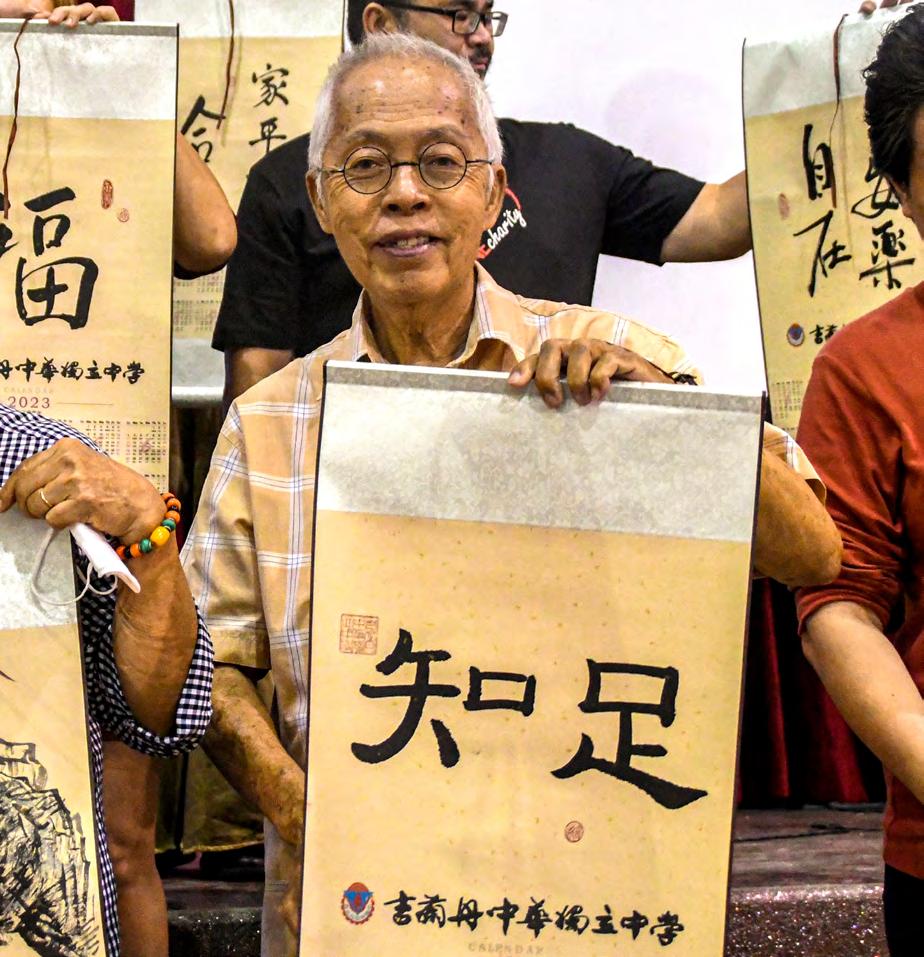 家平
合
福
丹中華獨立中学
CALENDAR
2023
charity
安樂
自在
吉
知足
吉蘭丹中華獨立中学
CALENDAR